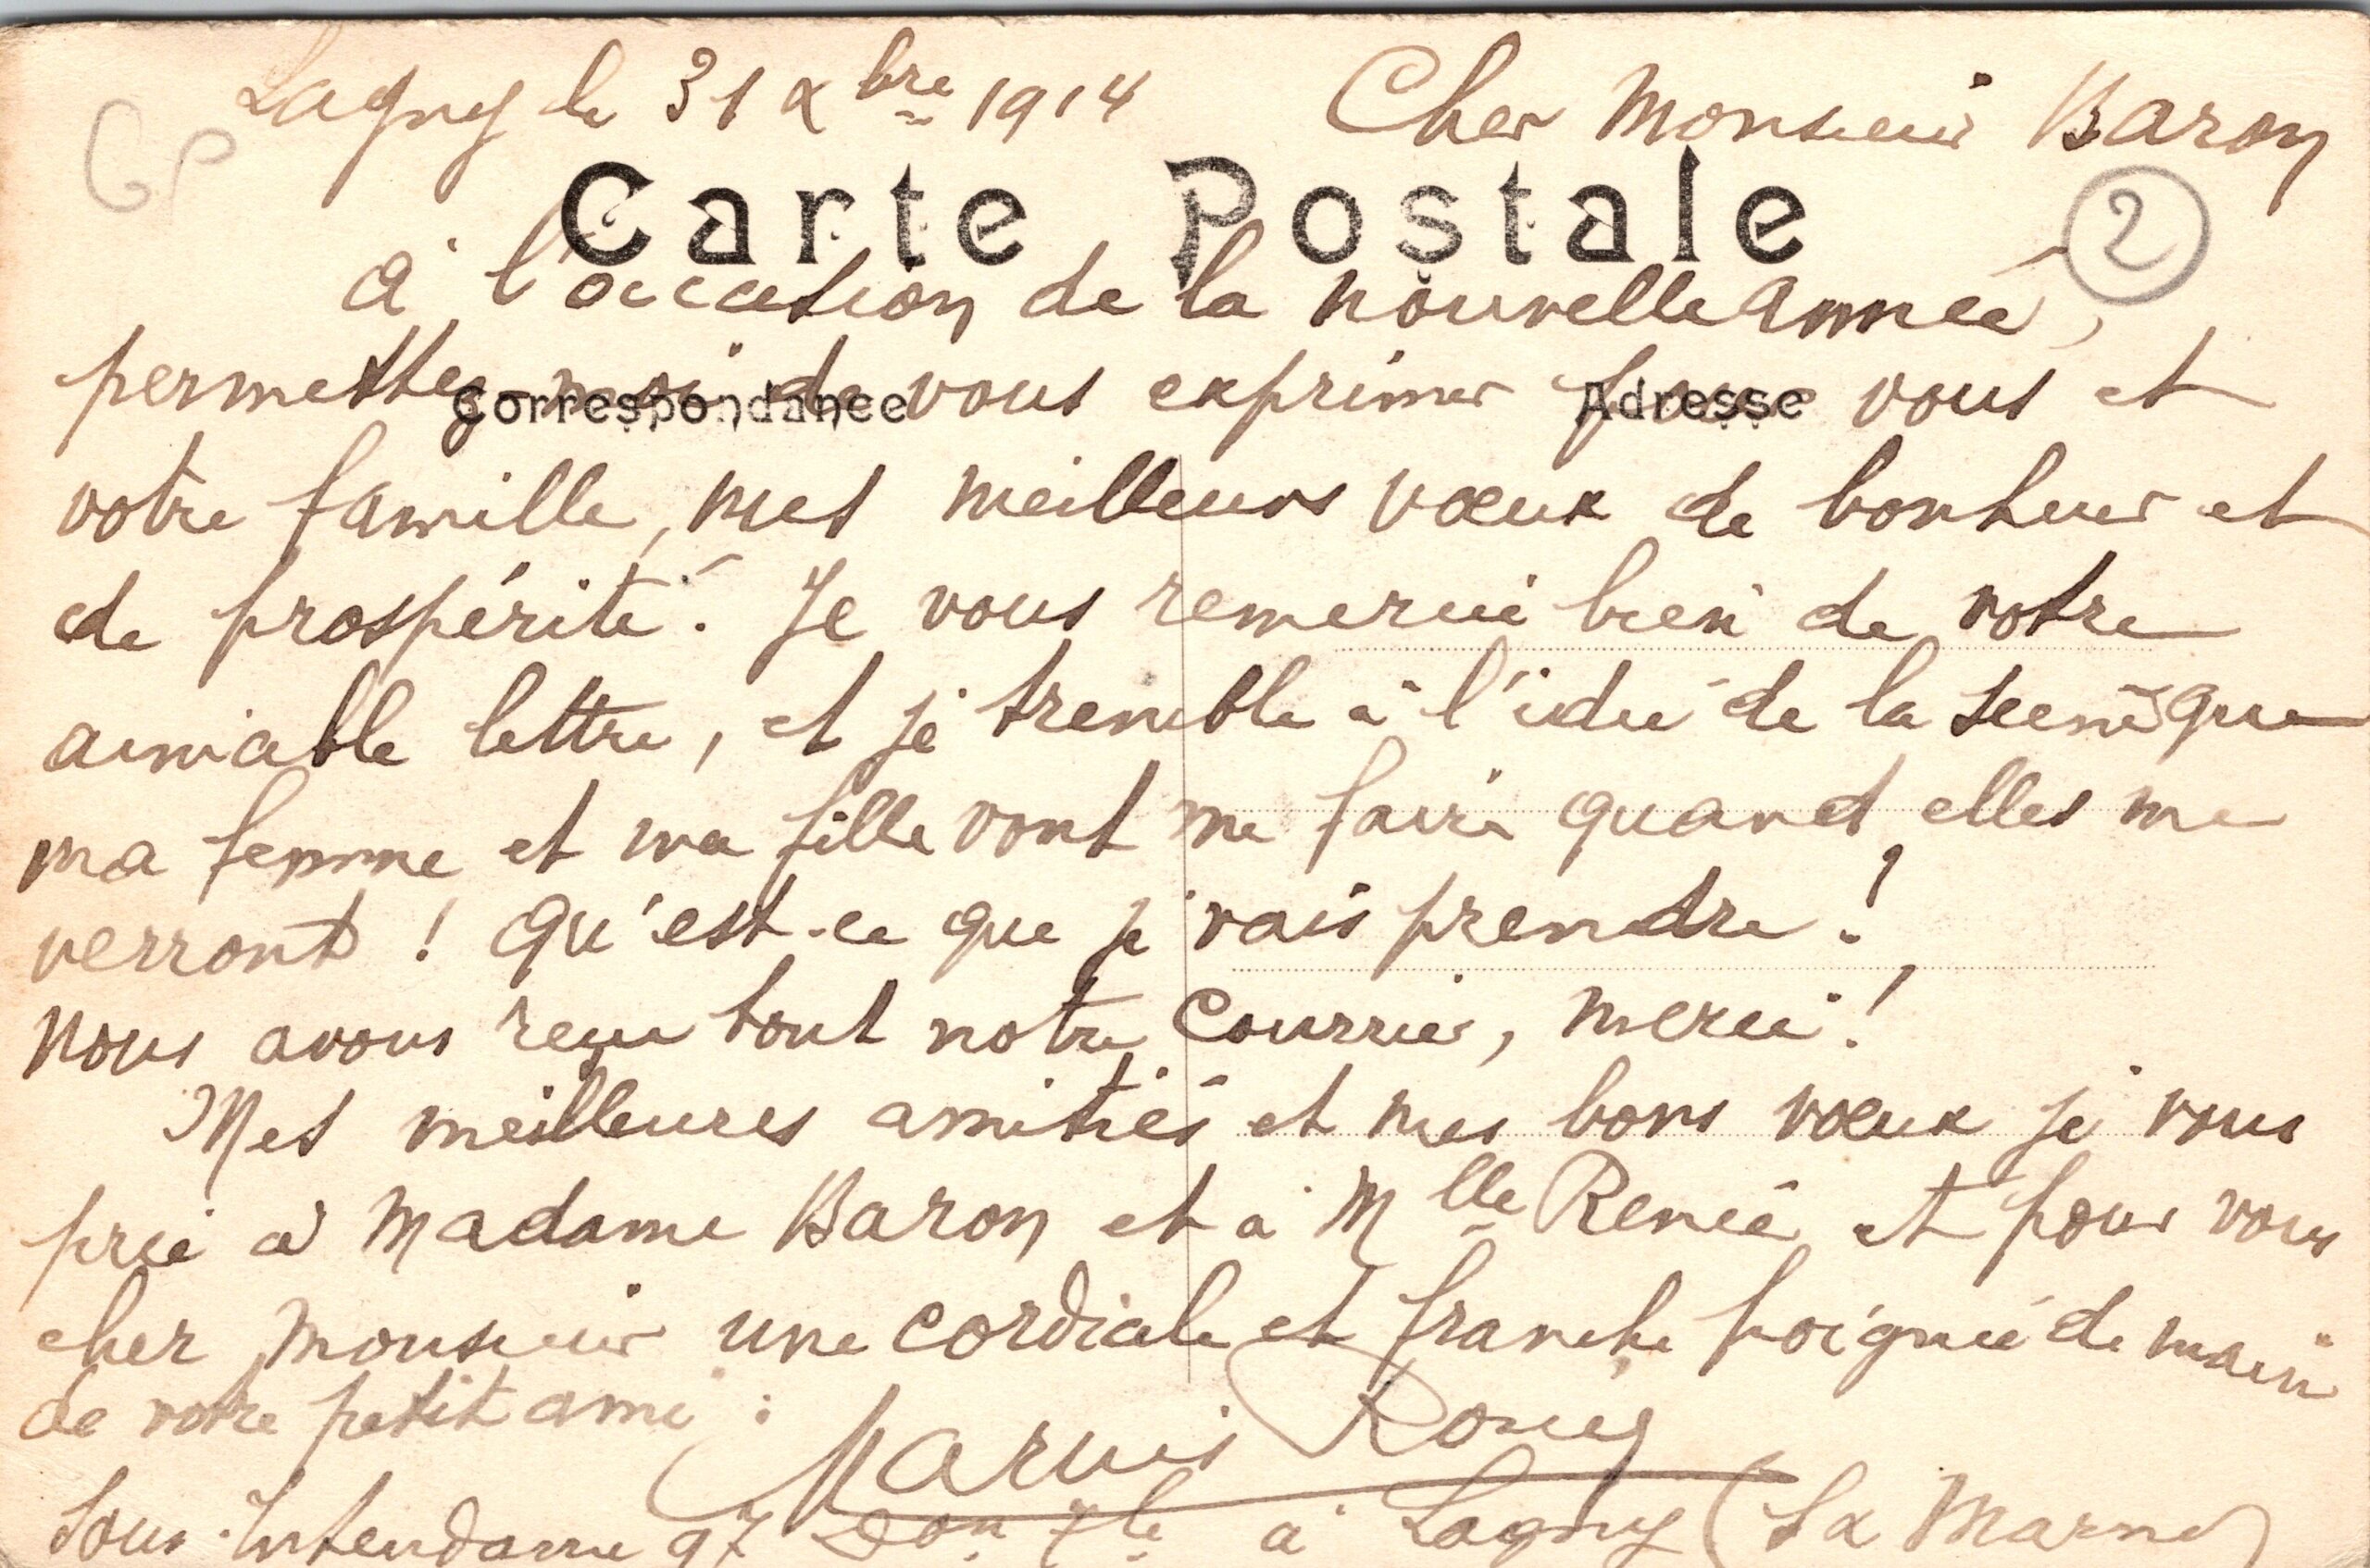 Lagny le 31 Xbre 1914 Cher Monsieur Baron
GP
Carte Postale
2
à l'occasion de la nouvelle année,
permettez moi de vous exprimer pour vous et
Correspondance Adresse
votre famille, mes meilleurs vœux de bonheur et
de prospérité. Je vous remercie bien de votre
aimable lettre, et je tremble à l'idée de la scène que
ma femme et ma fille vont me faire quand elles me
verront ! Qu'est-ce que je vais prendre !
Nous avons reçu tout notre Courrier, merci !
Mes meilleures amitiés et mes bons vœux je vous
prie à Madame Baron et à Mlle Renée et pour vous
cher Monsieur une cordiale et franche poignée de main
de votre petit ami :
Sous-Intendance 97 à Lagny (Sx Marne)